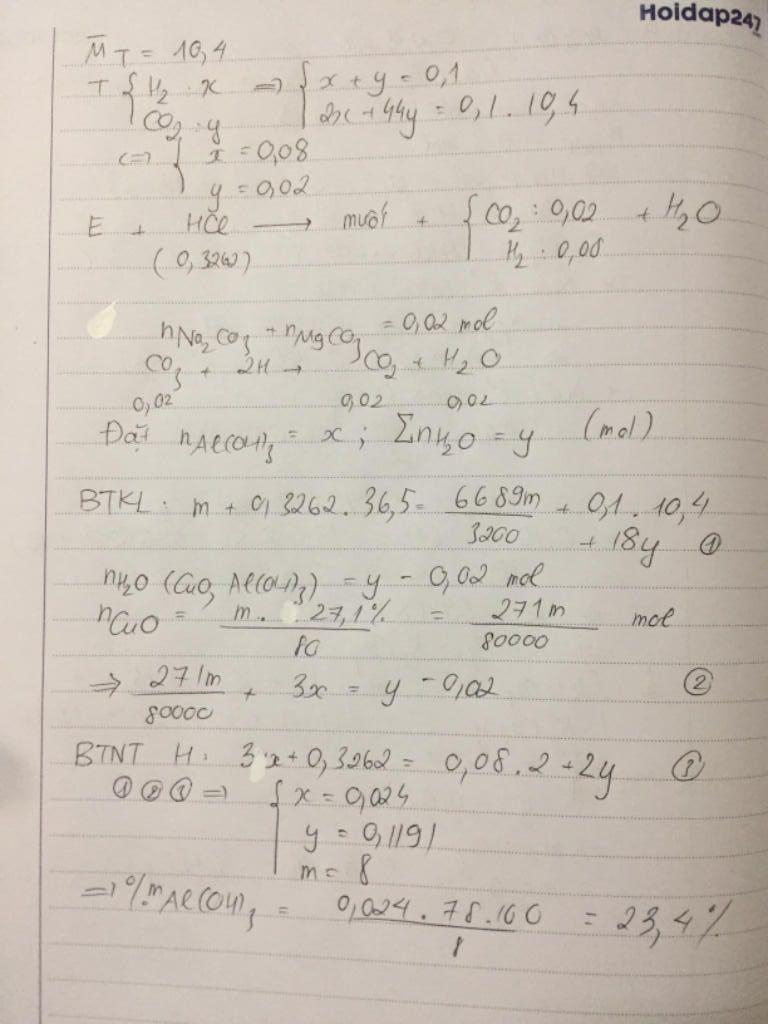 Hoidap247
M̄T = 10,4
T { H2 : x => { x + y = 0,1
CO2 : y 2x + 44y = 0,1 . 10,4
<=> { x = 0,08
y = 0,02
E + HCl → muối + { CO2 : 0,02 + H2O
(0,3262) H2 : 0,08
nNa2CO3 + nMgCO3 = 0,02 mol
CO3 + 2H → CO2 + H2O
0,02 0,02 0,02
Đặt nAl(OH)3 = x ; ΣnH2O = y (mol)
BTKL : m + 0,3262 . 36,5 = 6689m/3200 + 0,1 . 10,4
+ 18y ①
nH2O (CuO, Al(OH)3) = y - 0,02 mol
nCuO = m . 27,1%/80 = 271m/80000 mol
=> 271m/80000 + 3x = y - 0,02 ②
BTNT H : 3x + 0,3262 = 0,08 . 2 + 2y ③
① ② ③ => { x = 0,024
y = 0,1191
m = 8
=> %mAl(OH)3 = 0,024 . 78 . 100/8 = 23,4%